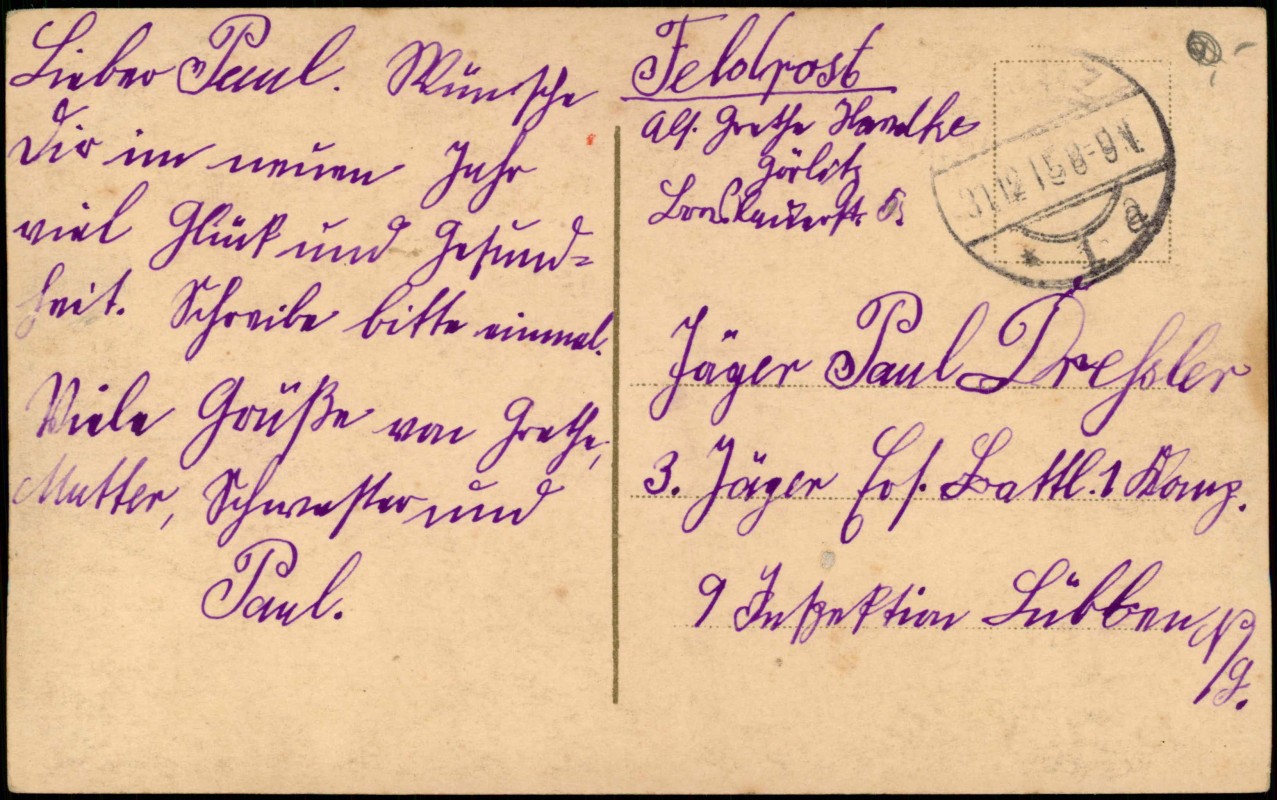 Lieber Paul. Wünsche
Dir im neuen Jahr
viel Glück und Gesund=
heit. Schreibe bitte einmal.
Viele Grüße von Grethe,
Mutter, Schwester und
Paul.
Feldpost
Abs. Grethe
Görlitz
5.
31.12.15.8-9 V.
* 1. a
Jäger Paul Dressler
3. Jäger Ers. Battl. 1 Komp.
9 Inspektion Lübben N/